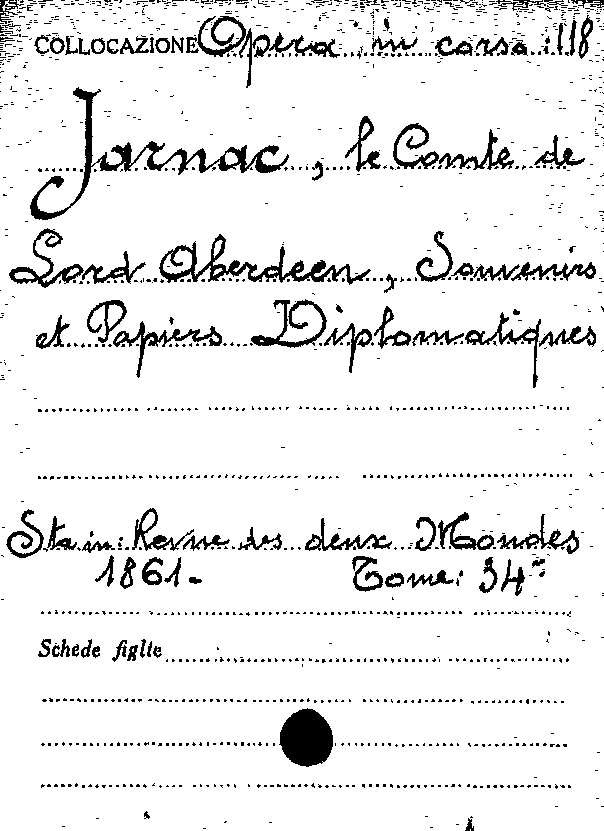 COLLOCAZIONE Opera in corso: 118
Jarnac, le Comte de
Lord Aberdeen, Souvenirs
et Papiers Diplomatiques
Sta in: Revue des deux Mondes
1861- Tome: 34me
Schede figlie